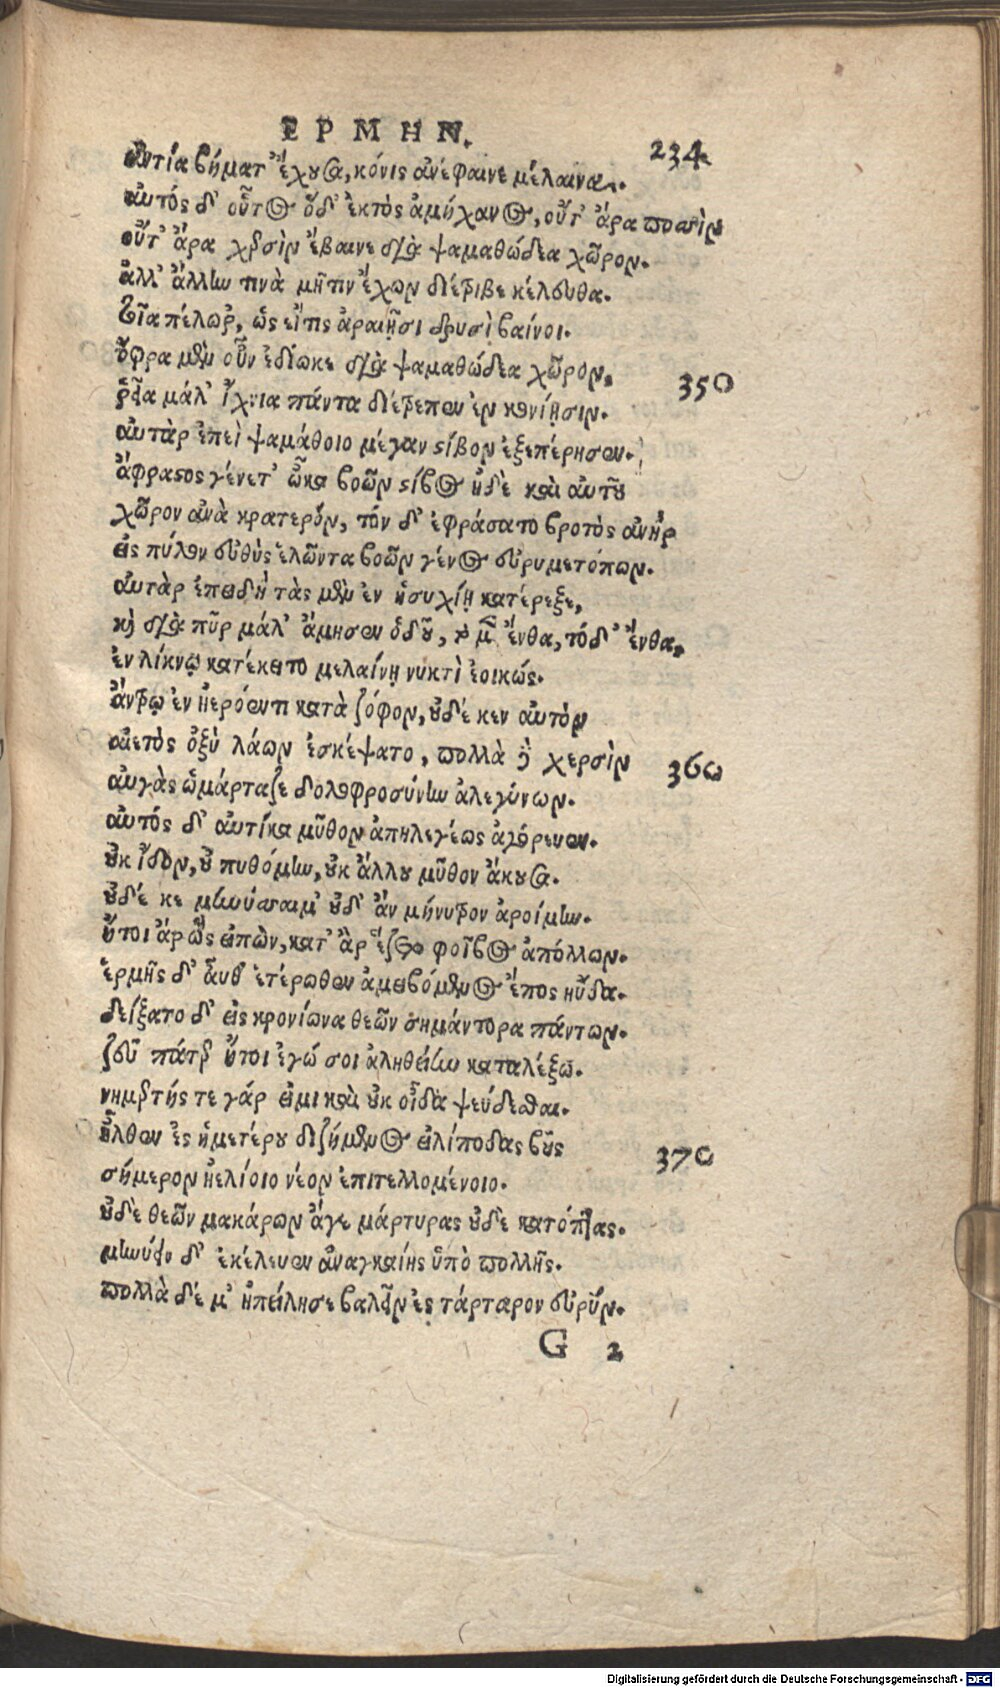 ΕΡΜΗΝ. 234
ἀντία βήματ' ἔχουσα, κόνις ἀνέφαινε μέλαινα.
αὐτός δ' οὗτος ὅδ' ἐκτὸς ἀμήχανος, οὔτ' ἄρα ποσσὶν
οὔτ' ἄρα χερσὶν ἔβαινε διὰ ψαμαθώδεα χῶρον.
ἀλλ' ἄλλην τινὰ μῆτιν ἔχων διέτριβε κέλευθα.
τοῖα πέλωρ, ὡς εἴτις ἀραιῇσι δρυσὶ βαίνοι.
ὄφρα μὲν οὖν ἐδίωκε διὰ ψαμαθώδεα χῶρον, 350
ῥεῖα μάλ' ἴχνια πάντα διέτρεπεν ἐν κονίῃσιν.
αὐτὰρ ἐπεὶ ψαμάθοιο μέγαν στίβον ἐξεπέρησεν.
ἄφραστος γένετ' ὦκα βοῶν στίβος ἠδὲ καὶ αὐτοῦ
χῶρον ἀνὰ κρατερόν, τόν δ' ἐφράσατο βροτὸς ἀνὴρ
εἰς πύλον εὐθὺς ἐλῶντα βοῶν γένος εὐρυμετόπων.
αὐτὰρ ἐπειδὴ τὰς μὲν ἐν ἡσυχίῃ κατέρεξε,
καὶ διὰ πῦρ μάλ' ἄμησεν ὁδοῦ, τὸ μὲν ἔνθα, τόδ' ἔνθα,
ἐν λίκνῳ κατέκειτο μελαίνῃ νυκτὶ ἐοικώς.
ἄντρῳ ἐν ἠερόεντι κατὰ ζόφον, οὐδέ κεν αὐτὸν
αἰετὸς ὀξὺ λάων ἐσκέψατο, πολλὰ δὲ χερσὶν 360
αὐγὰς ὠμάρταζε δολοφροσύνην ἀλεγύνων.
αὐτός δ' αὐτίκα μῦθον ἀπηλεγέως ἀγόρευεν.
οὐκ ἴδον, οὐ πυθόμην, οὐκ ἄλλου μῦθον ἄκουσα.
οὐδέ κε μηνύσαιμ' οὐδ' ἂν μήνυτρον ἀροίμην.
ἤτοι ἄρ ὣς εἰπὼν, κατ' ἂρ ἕζετο φοῖβος ἀπόλλων.
ἑρμῆς δ' αὖθ' ἑτέρωθεν ἀμειβόμενος ἔπος ηὔδα.
δείξατο δ' εἰς κρονίωνα θεῶν σημάντορα πάντων.
ζεῦ πάτερ ἤτοι ἐγώ σοι ἀληθείην καταλέξω.
νημερτής τε γάρ εἰμι καὶ οὐκ οἶδα ψεύδεσθαι.
ἦλθεν ἐς ἡμετέρου διζήμενος εἰλίποδας βοῦς 370
σήμερον ἠελίοιο νέον ἐπιτελλομένοιο.
οὐδὲ θεῶν μακάρων ἄγε μάρτυρας οὐδὲ κατόπτας.
μηνύειν δ' ἐκέλευεν ἀναγκαίης ὑπὸ πολλῆς.
πολλὰ δέ μ' ἠπείλησε βαλεῖν ἐς τάρταρον εὐρύν.
G 2
Digitalisierung gefördert durch die Deutsche Forschungsgemeinschaft - DFG